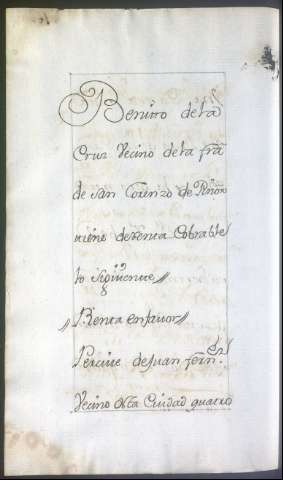 Benito de la
Cruz Vecino de la fra
de san Lorenzo de Piñor
tiene de renta Cobrable
lo siguiente//
//Renta en favor//
Percive de Juan fernz
Vecino desta Ciudad quatro